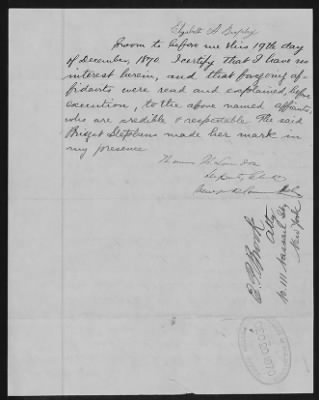 Elizabeth A
Sworn to before me this 19th day
of December, 1870. I certify that I have no
interest herein, and that foregoing af-
fidavits were read and explained, before
execution, to the above named affiants,
who are credible & respectable The said
Bridget Stephens made her mark in
my presence
Thomas
Deputy Clerk
E. P. Brook
Atty
No 111 Nassau St
New York